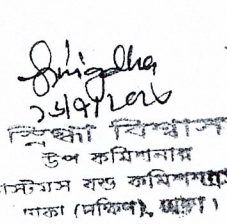 Snigdha
স্নিগ্ধা বিশ্বাস
উপ কমিশনার
কাস্টমস বন্ড কমিশনারেট
ঢাকা (দক্ষিণ), ঢাকা।